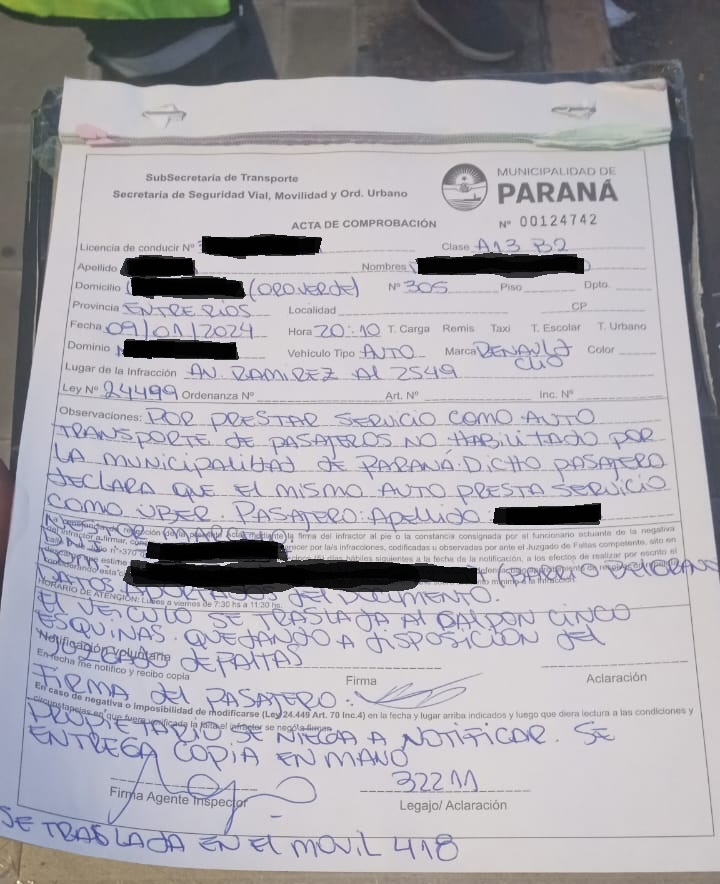 SubSecretaria de Transporte
Secretaria de Seguridad Vial, Movilidad y Ord. Urbano
MUNICIPALIDAD DE
PARANÁ
ACTA DE COMPROBACIÓN
Nº 00124742
Licencia de conducir Nº Clase A13 B2
Apellido Nombres
Domicilio (ORO VERDE) Nº 305 Piso Dpto.
Provincia ENTRE RÍOS Localidad CP
Fecha 09/01/2024 Hora 20:10 T. Carga Remis Taxi T. Escolar T. Urbano
Dominio Vehículo Tipo AUTO Marca RENAULT CLIO Color
Lugar de la Infracción AV. RAMIREZ Al 2549
Ley Nº 24499 Ordenanza Nº Art. Nº Inc. Nº
Observaciones: POR PRESTAR SERVICIO COMO AUTO
TRANSPORTE DE PASAJEROS NO HABILITADO POR
LA MUNICIPALIDAD DE PARANÁ. DICHO PASAJERO
DECLARA QUE EL MISMO AUTO PRESTA SERVICIO
COMO UBER. PASAJERO: Apellido
la firma del infractor al pie o la constancia consignada por el funcionario actuante de la negativa
por la/s infracciones, codificadas u observadas por ante el Juzgado de Faltas competente, sito en
días hábiles siguientes a la fecha de la notificación, a los efectos de realizar por escrito el
DEL DOCUMENTO.
HORARIO DE ATENCIÓN: Lunes a viernes de 7:30 hs a 11:30 hs.
EL VEHICULO SE TRASLADA AL GALPON CINCO
ESQUINAS. QUEDANDO A DISPOSICION DEL
Notificación Voluntaria
JUZGADO DE FALTAS
En fecha me notifico y recibo copia
Firma
Aclaración
FIRMA DEL PASAJERO:
En caso de negativa o imposibilidad de modificarse (Ley 24.449 Art. 70 Inc.4) en la fecha y lugar arriba indicados y luego que diera lectura a las condiciones y
circunstancias en que fuera verificada la falta el infractor se negó a firmar
PROPIETARIO SE NIEGA A NOTIFICAR. SE
ENTREGA COPIA EN MANO
32211
Firma Agente Inspector
Legajo/ Aclaración
SE TRASLADA EN EL MOVIL 418